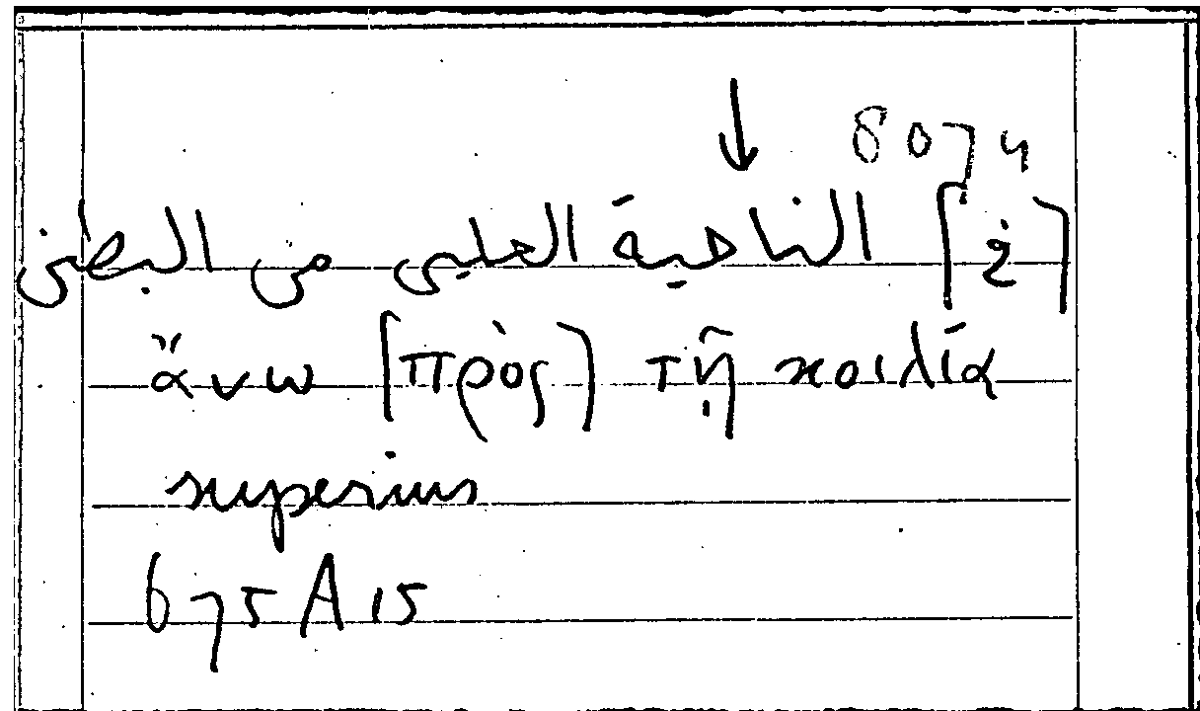 8074
[في] الناحية العليى من البطن
ἄνω [πρὸς] τῇ κοιλίᾳ
superius
675 A 15